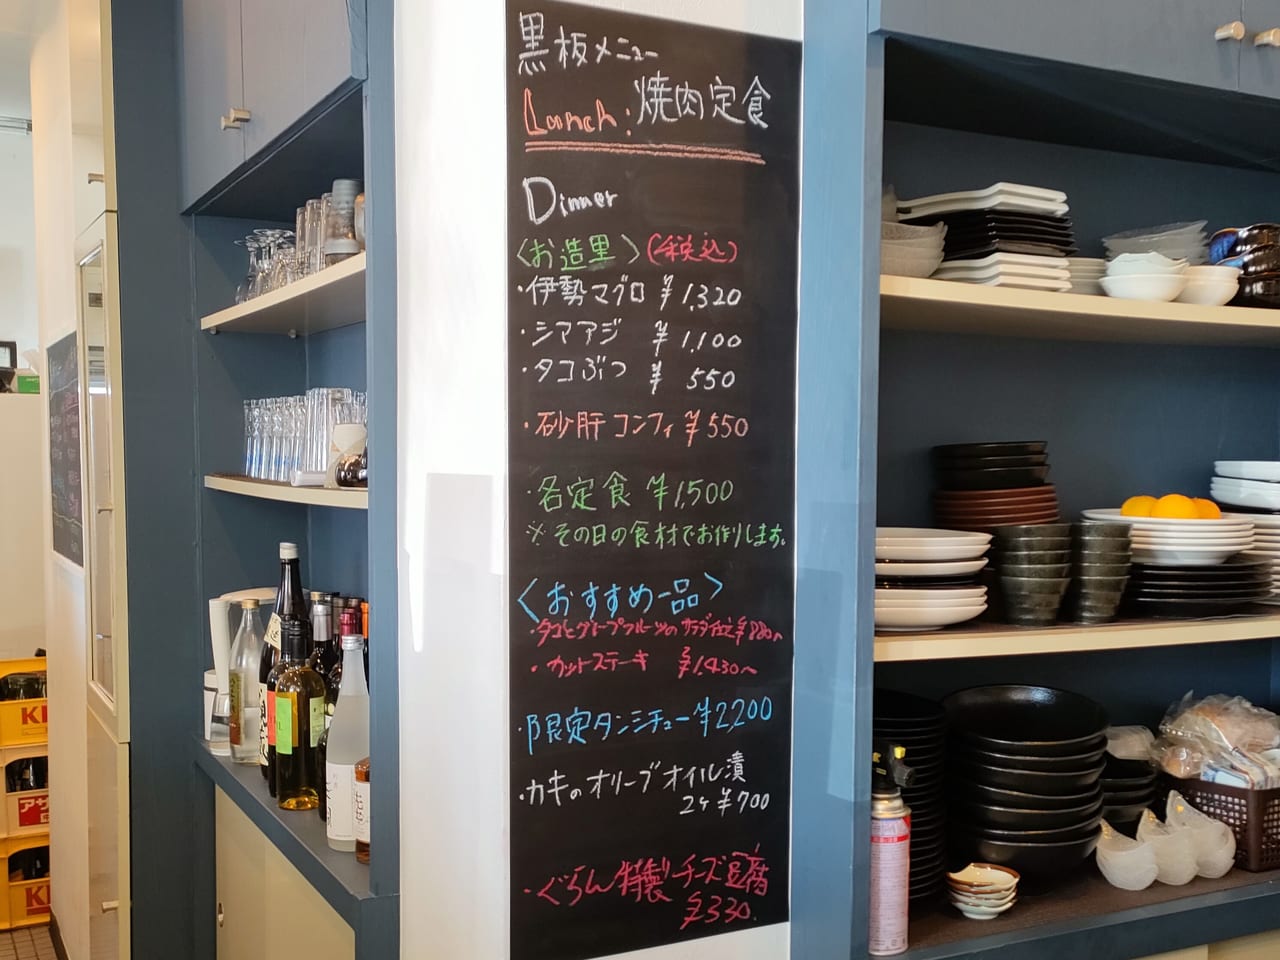 黒板メニュー
Loonch: 焼肉定食
Dinner
〈お造里〉(税込)
・伊勢マグロ ¥1,320
・シマアジ ¥1,100
・タコぶつ ¥550
・砂肝コンフィ ¥550
・各定食 ¥1,500
※その日の食材でお作りします。
〈おすすめ一品〉
・タコとグレープフルーツの ¥880〜
・カットステーキ ¥1,430〜
・限定タンシチュー ¥2,200
・カキのオリーブオイル漬
2ケ ¥700
・ぐらん特製チーズ豆腐
¥330.
KI
アサ
KI